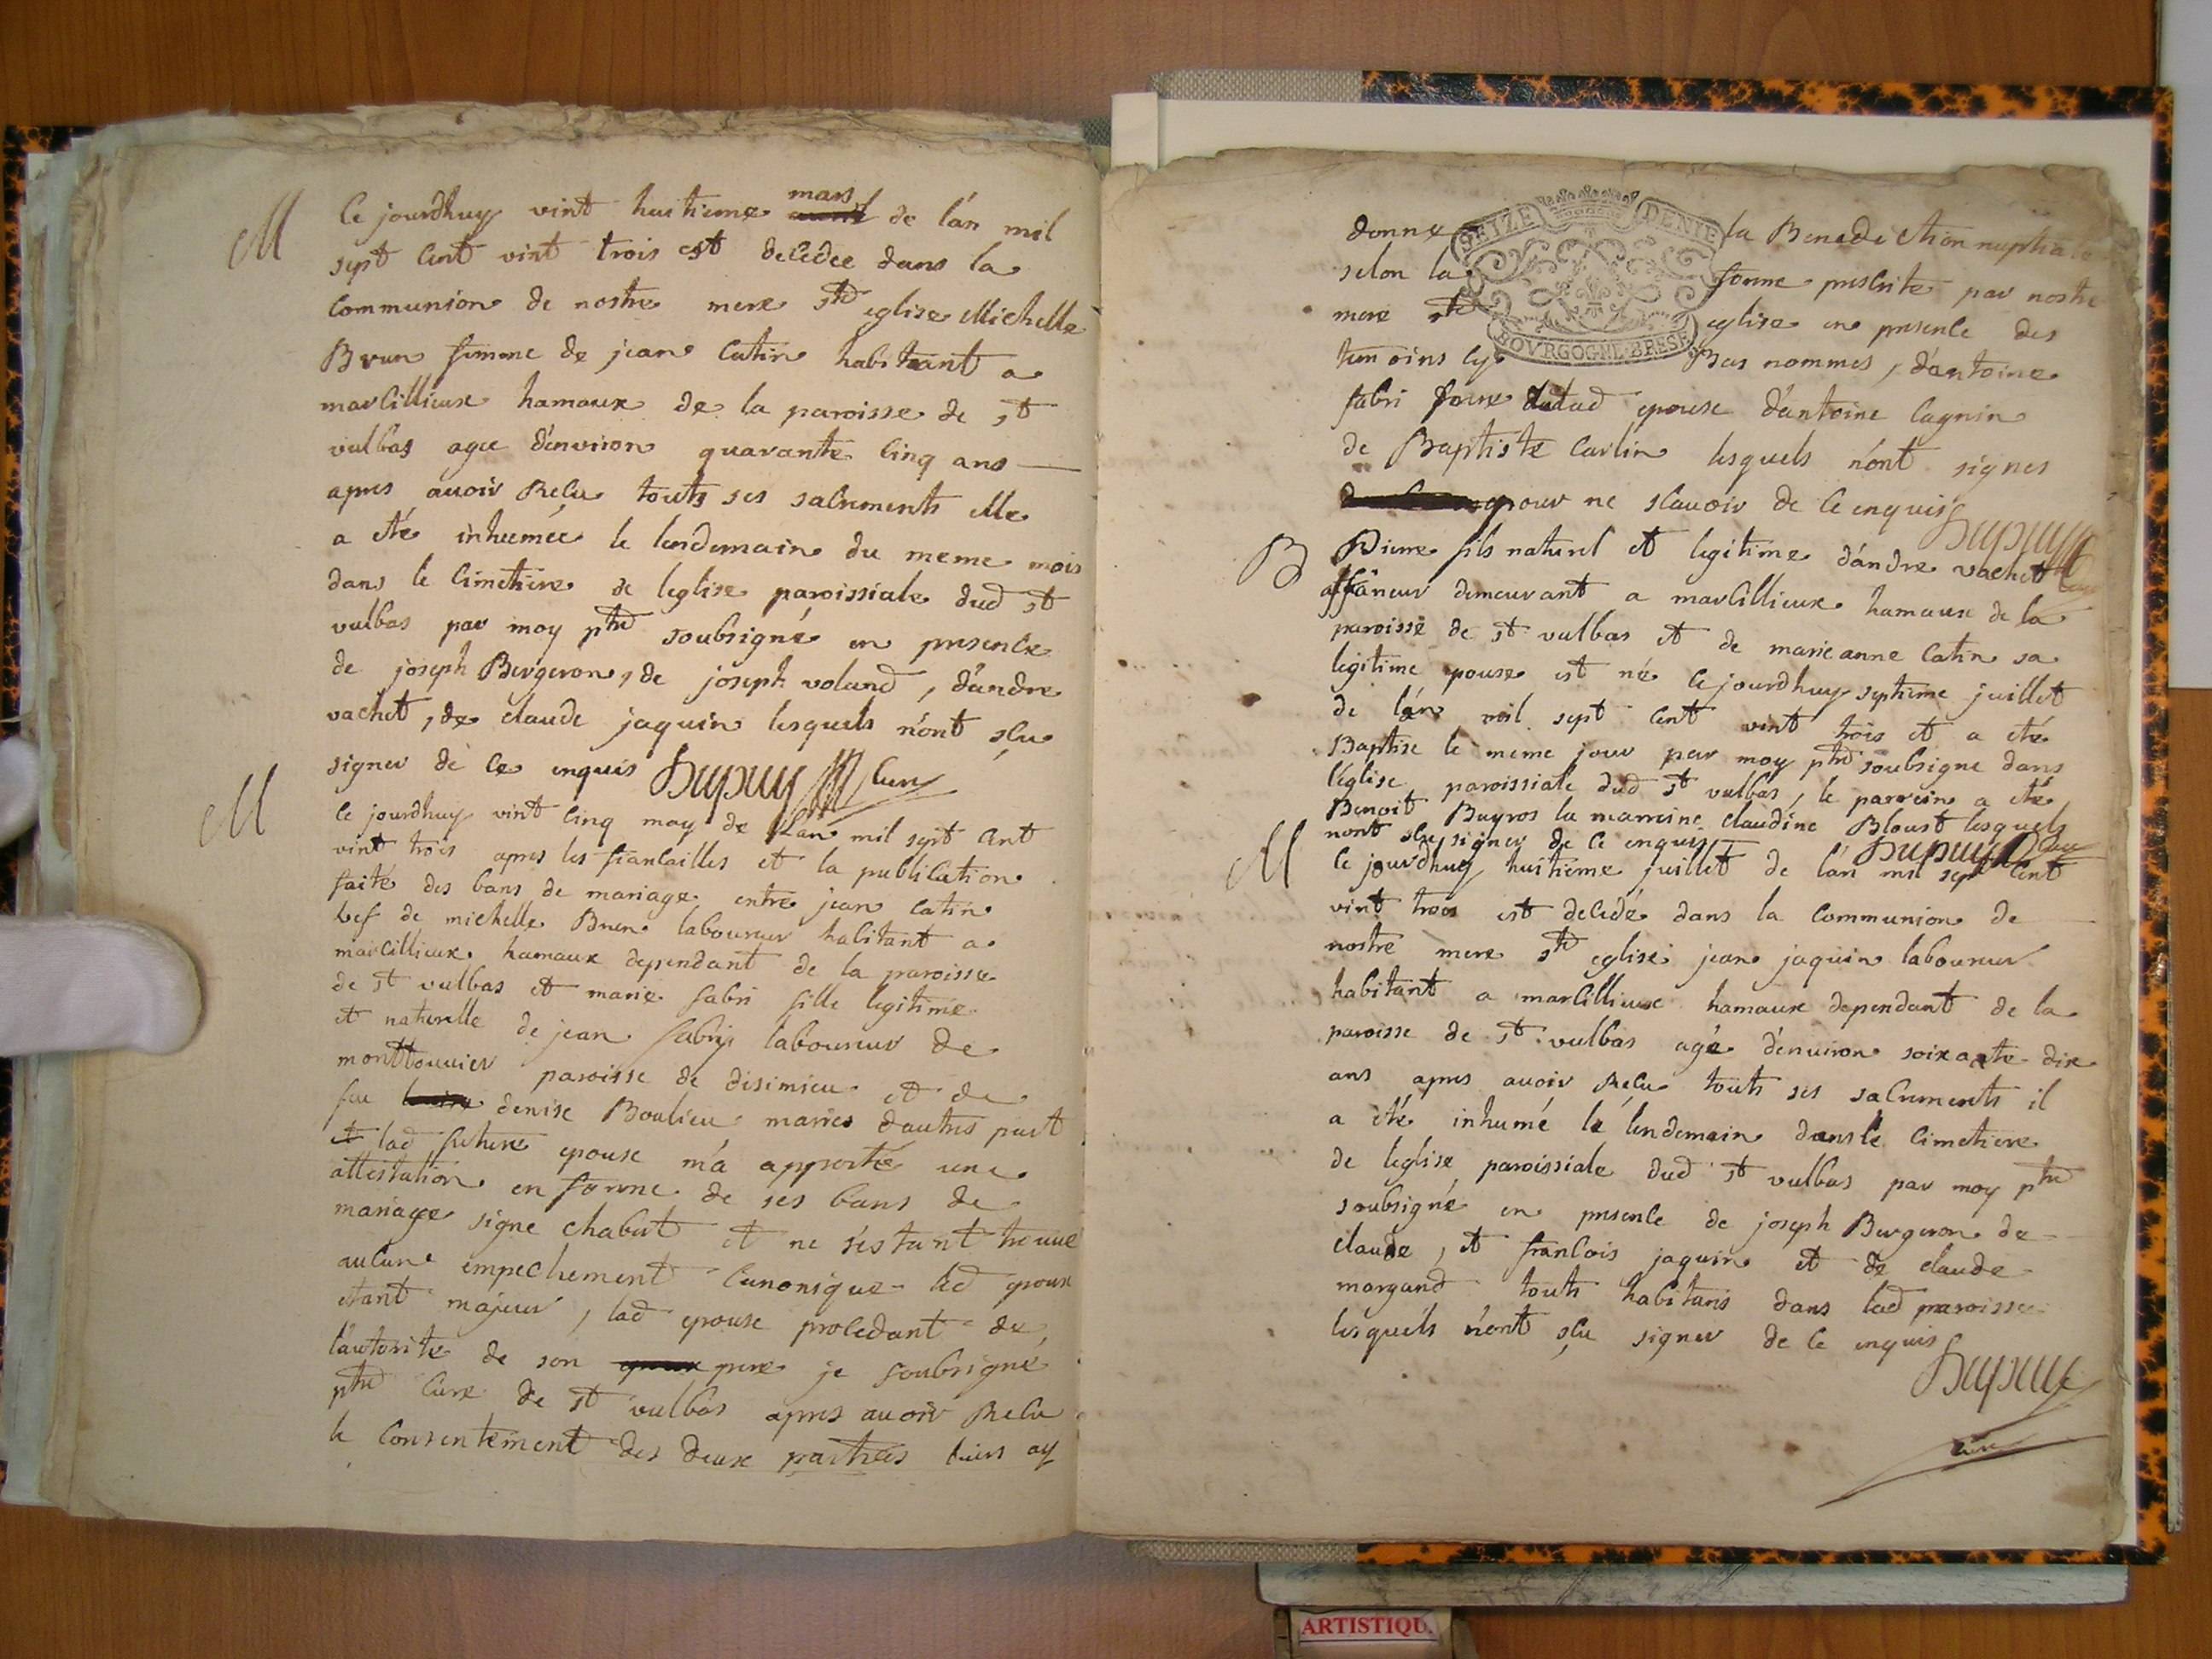 M
Ce jourdhuy vint huitieme mars de l'an mil
sept cent vint trois est decedee dans la
communion de nostre mere ste eglise Michelle
Brun femme de jean Catin habitant a
marcillieux hamaux de la paroisse de st
vulbas agee d'environ quarante cinq ans
apres avoir Recu touts ses sacrements elle
a été inhumée le lendemain du meme mois
dans le cimetiere de leglise paroissiale dud st
vulbas par moy ptre soubsigné en presence
de joseph Bergeron, de joseph voland, d'andre
vachet, de claude jaquin lesquels n'ont sçu
signer de ce enquis Dupuy Cure
M
Ce jourdhuy vint cinq may de l'an mil sept cent
vint trois apres les fiancailles et la publication
faite des bans de mariage entre jean Catin
vef de michelle Brun laboureur habitant a
marcillieux hamaux dependant de la paroisse
de st vulbas et marie fabri fille legitime
et naturelle de jean fabry laboureur de
paroisse de disimieu et de
feu denise Boulieu maries dautres part
et lad future epouse m'a apporté une
attestation en forme de ses bans de
mariage signe chabert et ne s'estant trouve
aucune empechement canonique led epoux
etant majeur, lad epouse procedant de
l'autorite de son pere je soubsigné
ptre cure de st vulbas apres avoir Recu
le consentement des deux parties leurs ay
donne la Benediction nuptiale
selon la forme prescrite par nostre
mere ste eglise en presence des
temoins cy Bas nommes, d'antoine
fabri epouse d'antoine Cagnin
de Baptiste Carlin lesquels n'ont signes
pour ne scavoir de ce enquis
Dupuy
SEIZE DENIE
BOVRGOGNE BRESE
B
Pierre fils naturel et legitime d'andre vachet
affâneur demeurant a marcillieux hamaux de la
paroisse de st vulbas et de marie anne Catin sa
legitime epouse est né ce jourdhuy septieme juillet
de l'an mil sept cent vint trois et a été
Baptise le meme jour par moy ptre soubsigne dans
l'eglise paroissiale dud st vulbas, le parrein a été
Benoit Buyros la marreine claudine Bloust lesquels
nont sçu signer de ce enquis Dupuy Cure
M
Ce jourdhuy huitieme juillet de l'an mil sept cent
vint trois est decedé dans la communion de
nostre mere ste eglise jean jaquin laboureur
habitant a marcillieux hamaux dependant de la
paroisse de st vulbas agé d'environ soixante dix
ans apres avoir Recu touts ses sacrements il
a été inhumé le lendemain dans le cimetiere
de leglise paroissiale dud st vulbas par moy ptre
soubsigné en presence de joseph Bergeron de
claude, et francois jaquin et de claude
margand touts habitans dans lad paroisse
lesquels n'ont sçu signer de ce enquis
Dupuy
Cure
ARTISTIQU